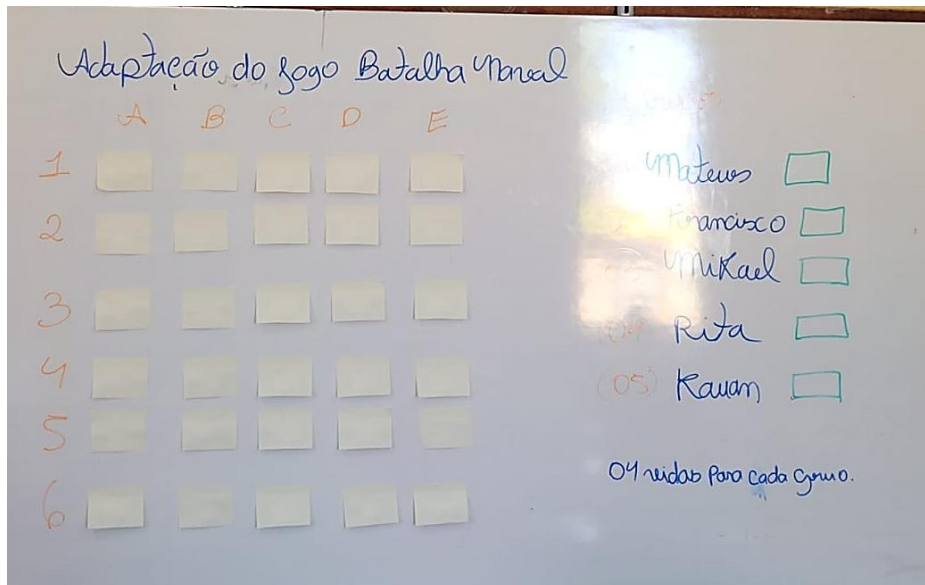 Adaptação do Jogo Batalha Naval
A B C D E
1
2
3
4
5
6
Mateus
Francisco
Mikael
Rita
(05) Kauan
04 vidas para cada grupo.